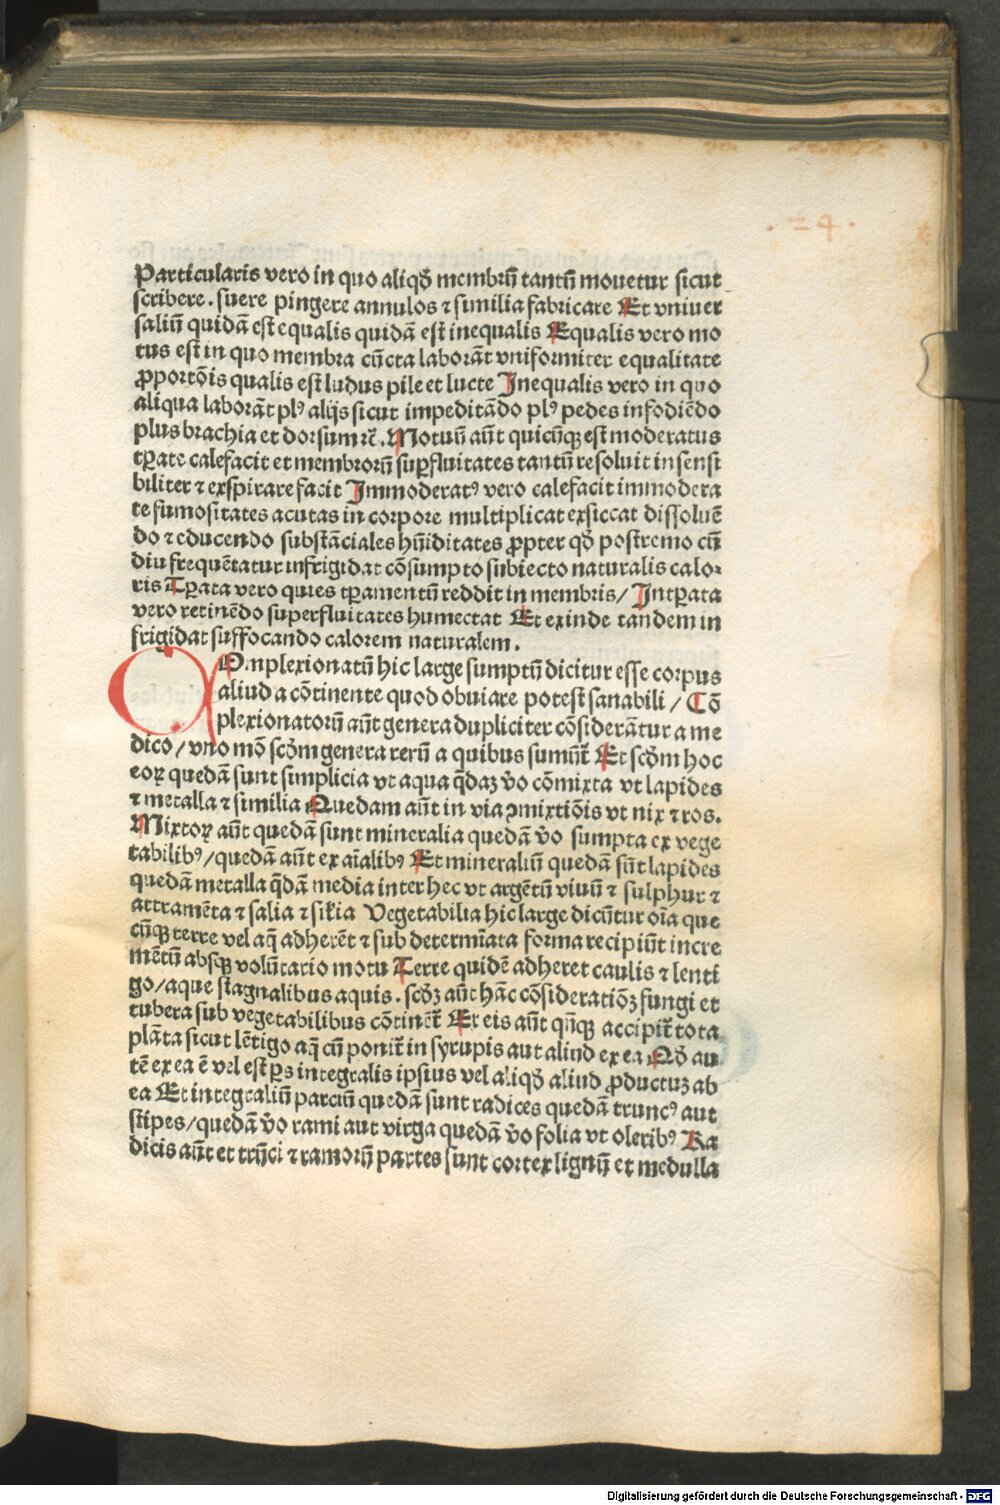 .24.
Particularis vero in quo aliqḋ membrū tantū mouetur sicut
scribere . suere pingere annulos ⁊ similia fabricare Et vniuer
saliū quidā est equalis quidā est inequalis Equalis vero mo
tus est in quo membra cūcta laborāt vniformiter equalitate
ꝓportōis qualis est ludus pile et lucte Inequalis vero in quo
aliqua laborāt plꝰ alijs sicut impeditādo plꝰ pedes infodiēdo
plus brachia et dorsum rc̄. Motuū aūt quicūqꝫ est moderatus
tꝑate calefacit et membrorū suꝑfluitates tantū resoluit insensi
biliter ⁊ exspirare facit Immoderatꝰ vero calefacit immodera
te fumositates acutas in corpore multiplicat exsiccat dissoluē
do ⁊ educendo substāciales hūiditates ꝓpter qḋ postremo cū
diu frequētatur infrigidat cōsumpto subiecto naturalis calo-
ris Tꝑata vero quies tꝑamentū reddit in membris / Intꝑata
vero retinēdo superfluitates humectat Et exinde tandem in
frigidat suffocando calorem naturalem .
COmplexionatū hic large sumptū dicitur esse corpus
aliud a cōtinente quod obuiare potest sanabili / Cō
plexionatorū aūt genera dupliciter cōsiderātur a me
dico / vno mō scḋm genera rerū a quibus sumūt̄ Et scḋm hoc
eoꝝ quedā sunt simplicia vt aqua q̄daꝫ v̇o cōmixta vt lapides
⁊ metalla ⁊ similia Quedam aūt in via ꝯmixtiōis vt nix ⁊ ros.
Mixtoꝝ aūt quedā sunt mineralia quedā v̇o sumpta ex vege
tabilibꝰ / quedā aūt ex aīalibꝰ Et mineraliū quedā sūt lapides
quedā metalla q̄dā media inter hec vt argētū viuū ⁊ sulphur ⁊
attramēta ⁊ salia ⁊ sil̄ia Vegetabilia hic large dicūtur oīa que
cūqꝫ terre vel aq̄ adherēt ⁊ sub determīata forma recipiūt incre
mētū absqꝫ volūtario motu Terre quidē adheret caulis ⁊ lenti
go / aque stagnalibus aquis . scḋꝫ aūt hāc cōsideratiōꝫ fungi et
tubera sub vegetabilibus cōtinēt̄ Ex eis aūt qn̄qꝫ accipit̄ tota
plāta sicut lētigo aq̄ cū ponit̄ in syrupis aut aliud ex ea Qḋ au
tē ex ea ē vel est ꝑs integralis ipsius vel aliqḋ aliud ꝓductuꝫ ab
ea Et integraliū parciū quedā sunt radices quedā truncꝰ aut
stipes / quedā v̇o rami aut virga quedā v̇o folia vt oleribꝰ Ra
dicis aūt et trūci ⁊ ramorū partes sunt cortex lignū et medulla
Digitalisierung gefördert durch die Deutsche Forschungsgemeinschaft - DFG